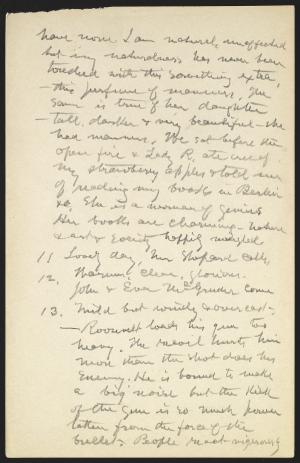 have none I am natural, unaffected
but my naturalness has never been
touched with this something extra,
— this perfume of manners. The
same is true of her daughter
— tall, darker & very beautiful — she
had manner. We sat before the
open fire & Lady R. ate one of
my strawberry apples & told me
of reading my books in Berlin
&c. She is a woman of genius
Her books are charming — nature
& art & society happily mingled
11 Lovely day, Mr Shepard calls,
12. Warmer, clear, glorious.
John & Eva McGruder come
13. Mild but windy & overcast —
— Roosevelt loads his gun too
heavy. The recoil hurts him
more than the shot does his
enemy. He is bound to make
a big noise but the kick
of the gun is so much power
taken from the force of the
bullet. People react vigorously